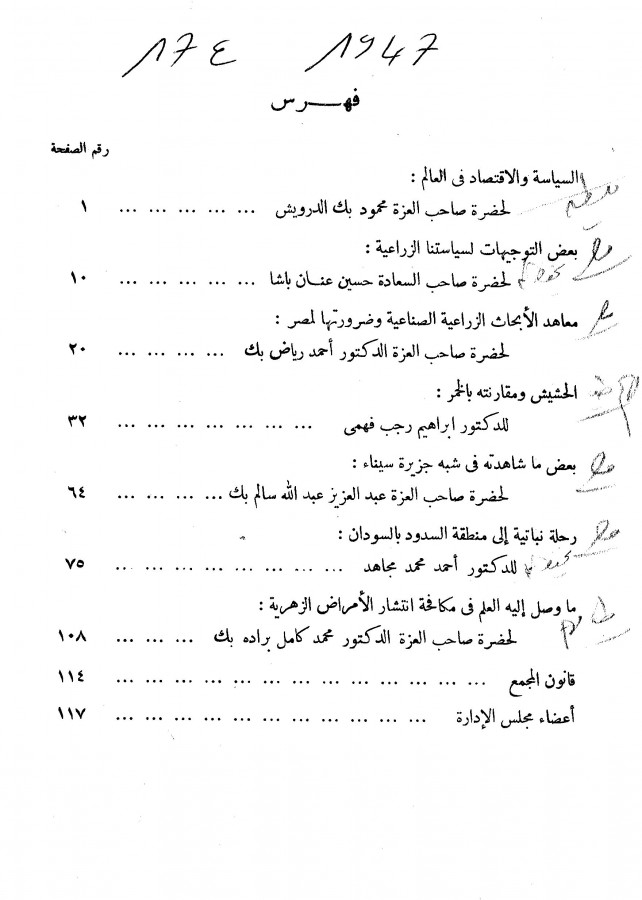 ١٧٤ ١٩٤٧
فهرس
رقم الصفحة
السياسة والاقتصاد فى العالم :
لحضرة صاحب العزة محمود بك الدرويش ... ... ... ... ... ١
بعض التوجيهات لسياستنا الزراعية :
لحضرة صاحب السعادة حسين عنان باشا ... ... ... ... ... ١٠
معاهد الأبحاث الزراعية الصناعية وضرورتها لمصر :
لحضرة صاحب العزة الدكتور أحمد رياض بك ... ... ... ... ٢٠
الحشيش ومقارنته بالخمر :
للدكتور ابراهيم رجب فهمى ... ... ... ... ... ... ... ... ٣٢
بعض ما شاهدته فى شبه جزيرة سيناء :
لحضرة صاحب العزة عبد العزيز عبد الله سالم بك ... ... ... ... ٦٤
رحلة نباتية إلى منطقة السدود بالسودان :
للدكتور أحمد محمد مجاهد ... ... ... ... ... ... ... ... ٧٥
ما وصل إليه العلم فى مكافحة انتشار الأمراض الزهرية :
لحضرة صاحب العزة الدكتور محمد كامل براده بك ... ... ... ١٠٨
قانون المجمع ... ... ... ... ... ... ... ... ... ... ... ... ... ١١٤
أعضاء مجلس الإدارة ... ... ... ... ... ... ... ... ... ... ... ١١٧